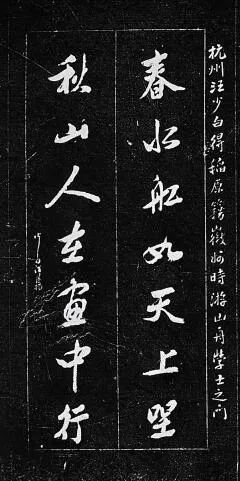 杭州汪少白得稻原
時游山舟學士之門
春水船如天上坐
秋山人在畫中行